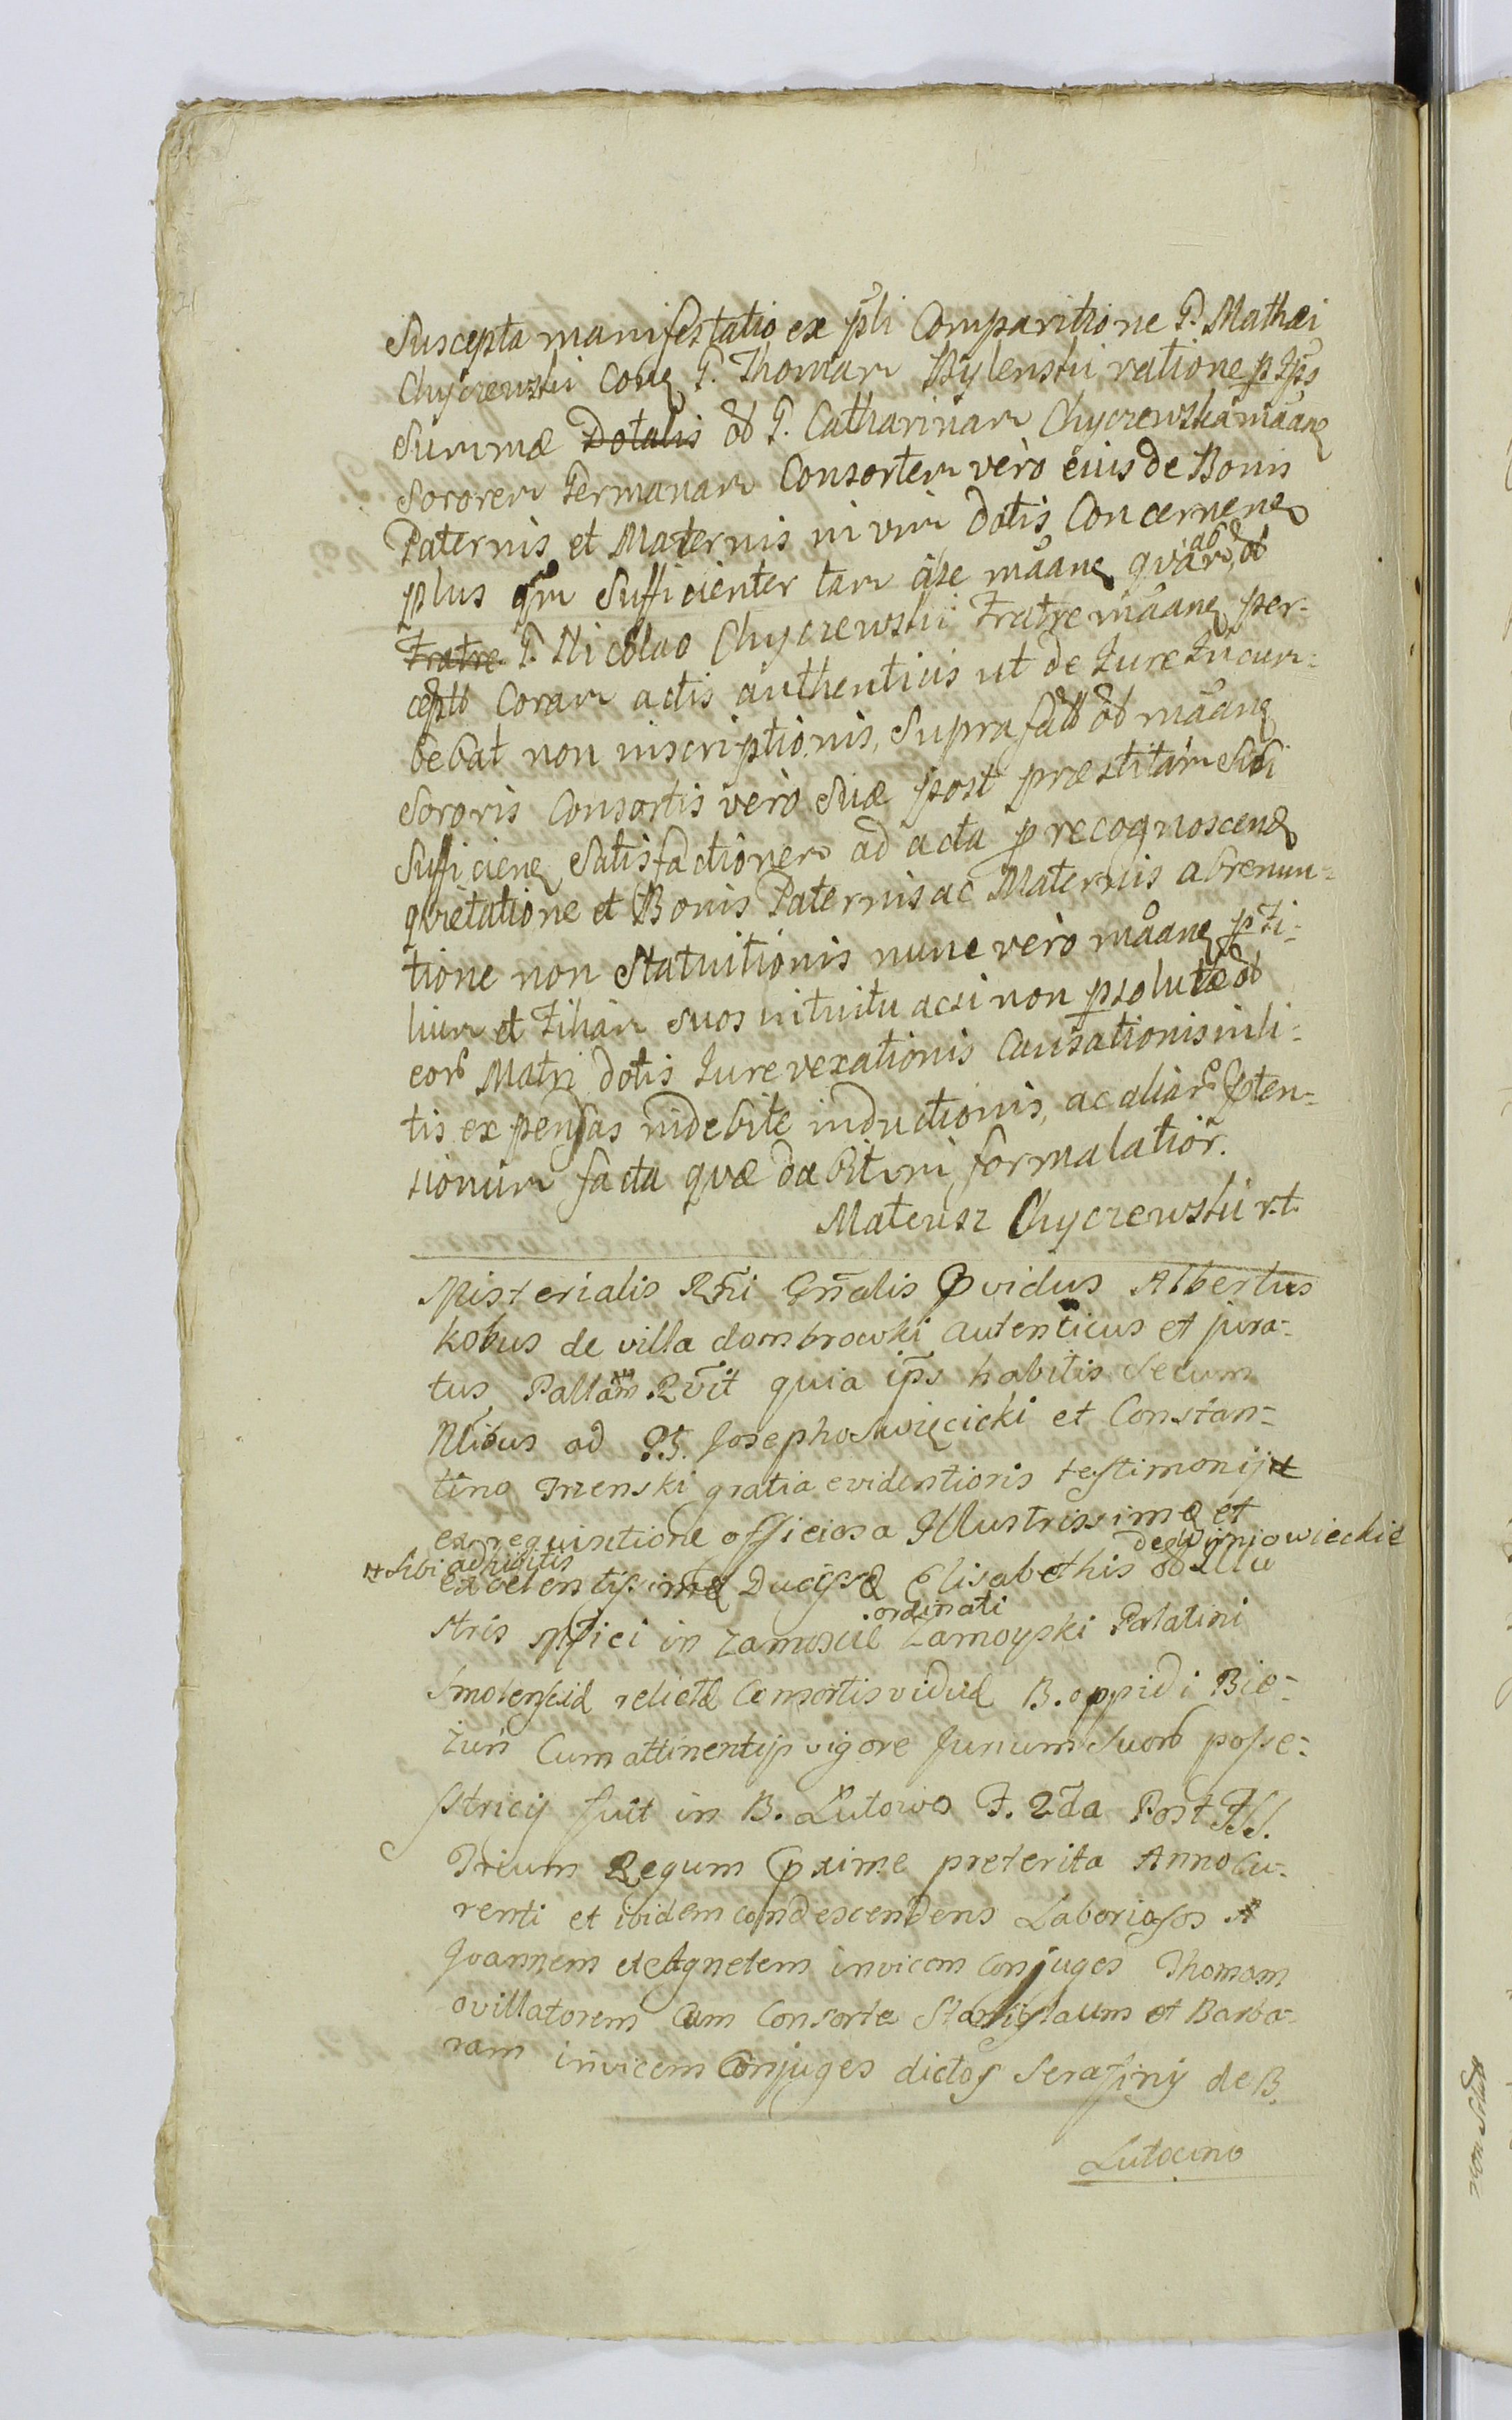 Suscepta manifestatio ex pli Comparitione P. Mathæi
Chyczewski Cong P. Thomam Bylenski ratione p Ips
Summæ Dotalis dd P. Catharinam Chyczewska maang
Sororem Germanam Consortem vero eius de Bonis
Paternis et Maternis in vim dotis Concernen
plus qm Sufficienter tam a se maang quam ab dd
Fratre P. Nicolao Chyczewski Fratre maang per-
ceptd Coram actis authenticis ut de Jure Incum-
bebat non inscriptionis, Suprafatt dd maang
Sororis Consortis vero Suæ post præstitam Sibi
Sufficieng Satisfactionem ad acta p recognoscend
quietatione et Bonis Paternis ac Maternis abrenun-
tione non Statuitionis nunc vero maang p Fi-
lium et Filiam Suos intuitu acsi non psolutæ dd
eorb Matri dotis Jure vexationis Causationis inli-
tis expensas indebite inductionis, ac aliar pten-
sionum facta quæ dabitur in forma latior.
Mateusz Chyczewski r.t.
Misterialis Rni Gnalis Pvidus Albertus
Kobus de villa dombrowki autenticus et jura-
tus Pallam Rvit quia ips habitis Secum
Nlibus ad PP. Josepho Swięcicki et Constan-
tino Trzenski gratia evidentioris testimonij #
ex requisitione officiosa Illustrissimæ et
# Sibi adhibitis
excelentissimæ Ducissæ Elisabethis de Winiowieckie dd Illu
stris Mfici in Zamoscie ordinati Zamoyski Palatini
Smolensciæ relictæ Consortis viduæ B. oppidi Bie-
zun Cum attinentijs vigore Jurium Suorb posse-
stricis fuit in B. Lutowo F. 2da Post FSS.
Trium Regum pxime preterita Anno Cu-
renti et ibidem condescendens Laboriosos
Joannem et Agnetem invicem Conjuges Thomam
ovillatorem Cum Consorte Stanislaum et Barba-
ram invicem Conjuges dictos Serafiny de B.
Lutocino
non Solub